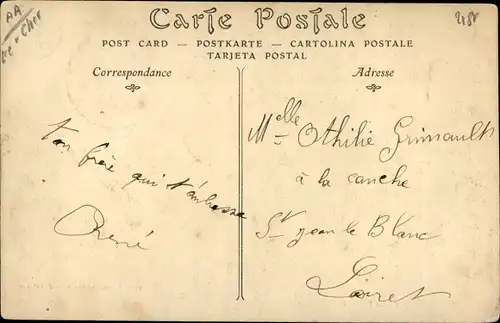 AA
Carte Postale
POST CARD — POSTKARTE — CARTOLINA POSTALE
TARJETA POSTAL
Correspondance
Adresse
ton frère qui t'embrasse
René
Melle Othilie Grinsault
à la canche
St jean le Blanc
Loiret